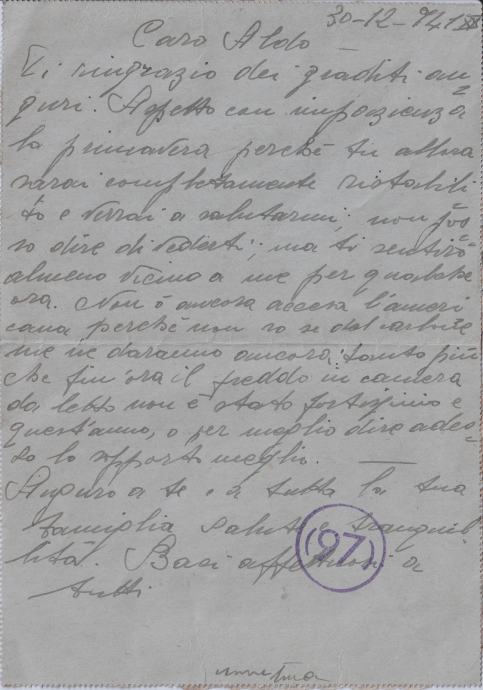 30-12-941 XX
Caro Aldo –
Ti ringrazio dei graditi au=
guri. Aspetto con impazienza
la primavera perchè tu allora
sarai completamente ristabili
to e verrai a salutarmi, non pos
so dire di vederti; ma ti sentirò
almeno vicino a me per qualche
ora. Non è ancora accesa l'ameri
cana perchè non so se del carbone
me ne daranno ancora; tanto più
che fin'ora il freddo in camera
da letto non è stato fortissimo e
quest'anno, o per meglio dire ades=
so lo sopporto meglio. —
Auguro a te e a tutta la tua
famiglia salute e tranquil
lità. Baci affettuosi a
tutti
(97)